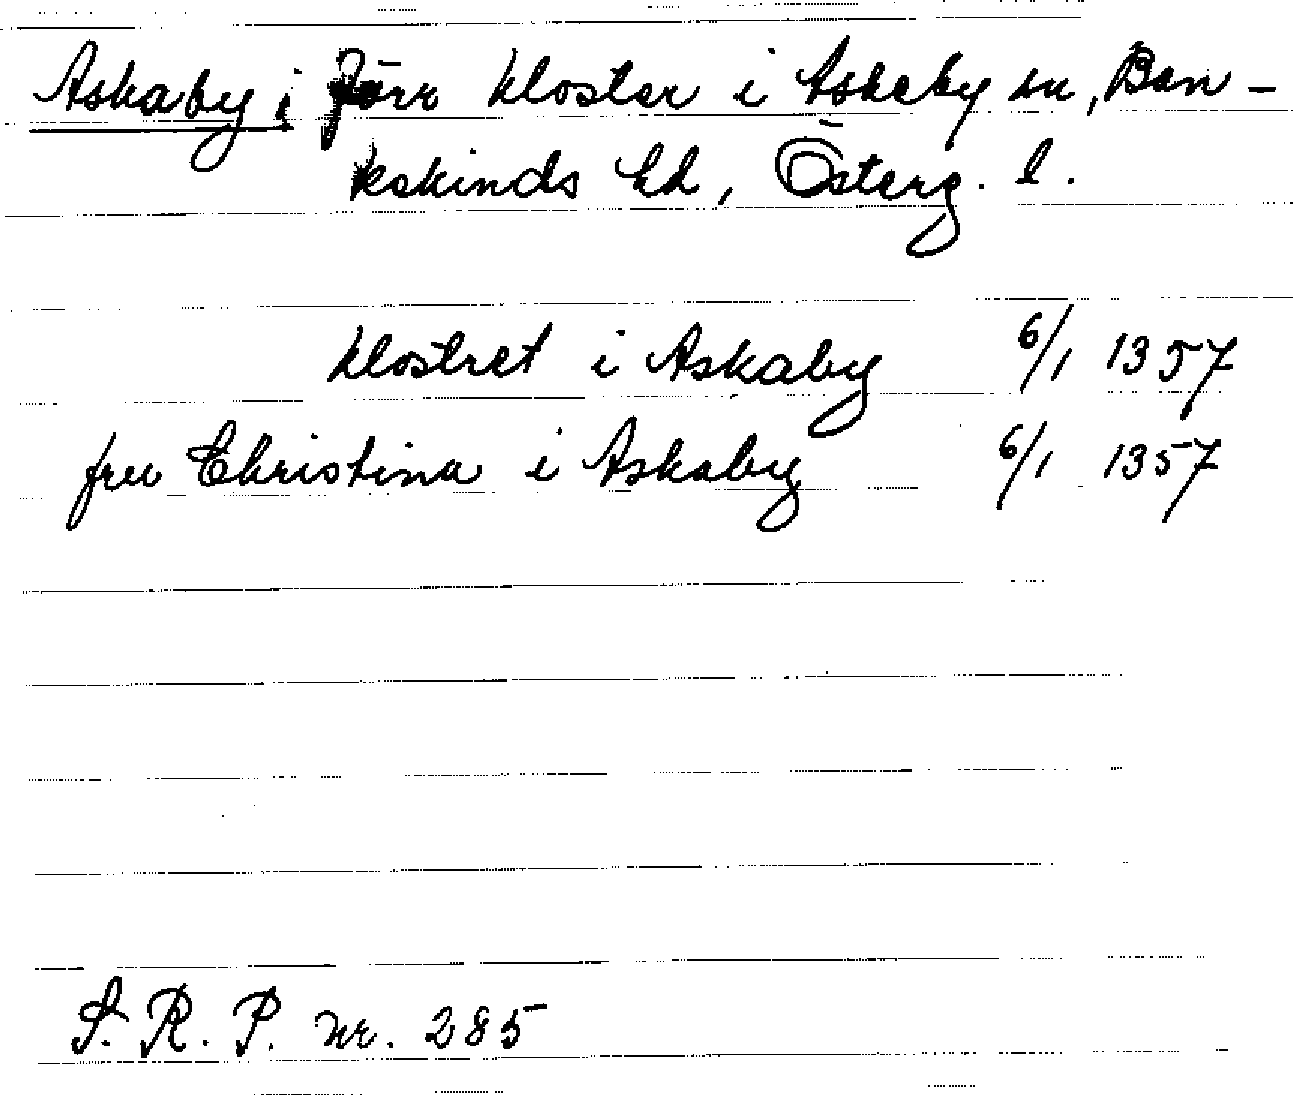 Askaby i Förr kloster i Askeby sn, Ban-
kekinds hd, Österg. l.
klostret i Askaby 6/1 1357
fru Christina i Askaby 6/1 1357
S. R. P. nr. 285